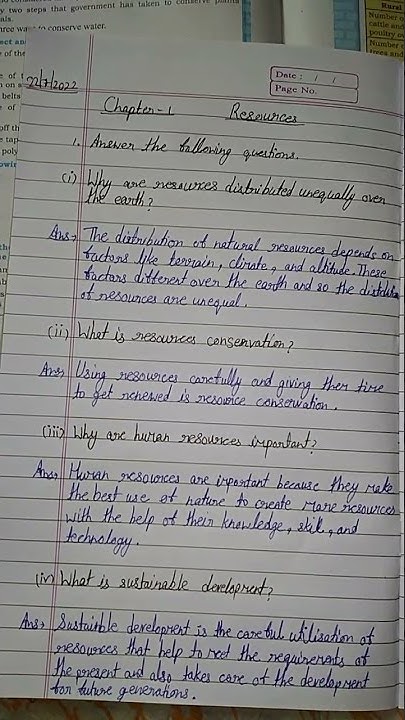 y two steps that government has taken to conserve
als.
three ways to conserve water.
Rural
Number o
cattle and
poultry ov
Number o
trees and
Date : / /
Page No.
22/7/2022
Chapter-1 Resources
1. Answer the following questions.
(i) Why are resources distributed unequally over
the earth?
Ans→ The distribution of natural resources depends on
factors like terrain, climate, and altitude. These
factors different over the earth and so the
of resources are unequal.
(ii) What is resources conservation?
Ans→ Using resources carefully and giving them time
to get renewed is resource conservation.
(iii) Why are human resources important?
Ans→ Human resources are important because they make
the best use of nature to create more resources
with the help of their knowledge, skill, and
technology.
(iv) What is sustainable development?
Ans→ Sustainble development is the careful utilisation of
resources that help to meet the requirements of
the present and also takes care of the development
for future generations.